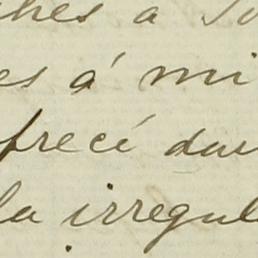 ches á su
es á mi
frecé dar
la irregul